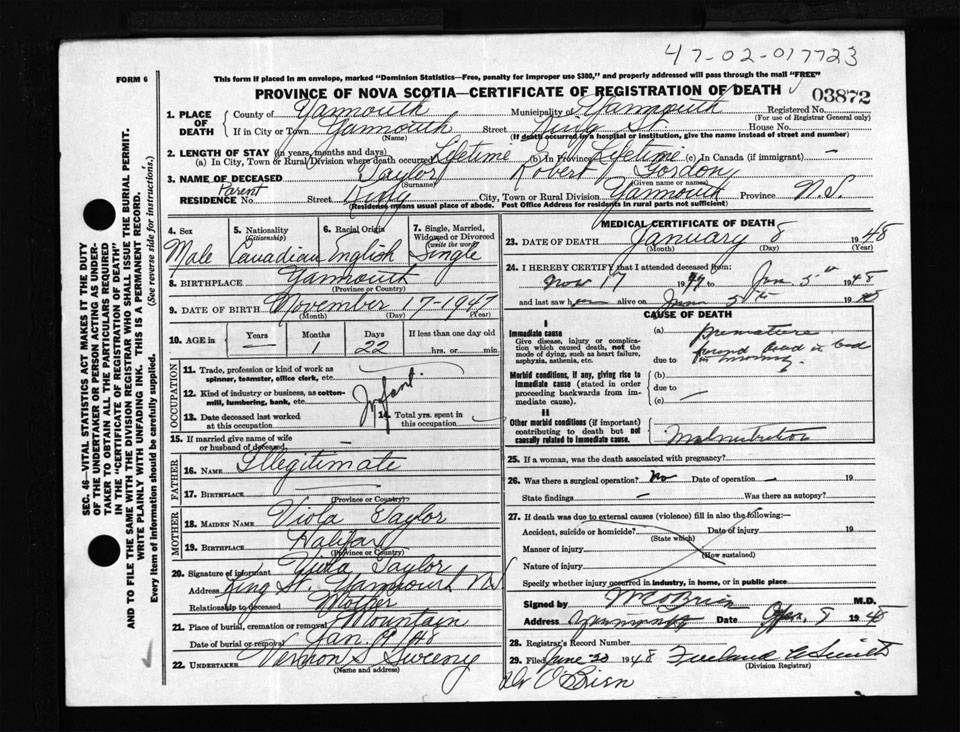 47-02-017723
FORM 6
This form if placed in an envelope, marked "Dominion Statistics—Free, penalty for improper use $300," and properly addressed will pass through the mail "FREE"
PROVINCE OF NOVA SCOTIA—CERTIFICATE OF REGISTRATION OF DEATH
03872
SEC. 46—VITAL STATISTICS ACT MAKES IT THE DUTY OF THE UNDERTAKER OR PERSON ACTING AS UNDERTAKER TO OBTAIN ALL THE PARTICULARS REQUIRED IN THE "CERTIFICATE OF REGISTRATION OF DEATH"
AND TO FILE THE SAME WITH THE DIVISION REGISTRAR WHO SHALL ISSUE THE BURIAL PERMIT.
WRITE PLAINLY WITH UNFADING INK. THIS IS A PERMANENT RECORD.
Every item of information should be carefully supplied. (See reverse side for instructions.)
1. PLACE OF DEATH
County of Yarmouth Municipality of Yarmouth Registered No.
(For use of Registrar General only)
If in City or Town Yarmouth Street King St. House No.
(Name) (If death occurred in a hospital or institution, give the name instead of street and number)
2. LENGTH OF STAY (in years, months and days)
(a) In City, Town or Rural Division where death occurred Lifetime (b) In Province Lifetime (c) In Canada (if immigrant) —
3. NAME OF DECEASED Taylor Robert Gordon
(Surname) (Given name or names)
Parent
RESIDENCE No. Street King City, Town or Rural Division Yarmouth Province N.S.
(Residence means usual place of abode. Post Office Address for residents in rural parts not sufficient)
4. Sex 5. Nationality (Citizenship) 6. Racial Origin 7. Single, Married, Widowed or Divorced (write the word)
Male Canadian English Single
8. BIRTHPLACE Yarmouth
(Province or Country)
9. DATE OF BIRTH November 17-1947
(Month) (Day) (Year)
10. AGE in Years Months Days If less than one day old
— 1 22 hrs. or min.
OCCUPATION
11. Trade, profession or kind of work as spinner, teamster, office clerk, etc.
12. Kind of industry or business, as cotton-mill, lumbering, bank, etc.
Infant
13. Date deceased last worked at this occupation 14. Total yrs. spent in this occupation
15. If married give name of wife or husband of deceased —
FATHER
16. NAME Illegitimate
17. BIRTHPLACE —
(Province or Country)
MOTHER
18. MAIDEN NAME Viola Taylor
19. BIRTHPLACE Halifax
(Province or Country)
20. Signature of informant Viola Taylor
Address King St. Yarmouth N.S
Relationship to deceased Mother
21. Place of burial, cremation or removal Mountain
Date of burial or removal Jan. 9/48
22. UNDERTAKER Vernon S Sweeny
(Name and address)
MEDICAL CERTIFICATE OF DEATH
23. DATE OF DEATH January 8 1948
(Month) (Day) (Year)
24. I HEREBY CERTIFY that I attended deceased from:
Nov 17 1947 to Jan 5th 1948
and last saw h alive on 5th 1948
CAUSE OF DEATH
I
Immediate cause
Give disease, injury or complication which caused death, not the mode of dying, such as heart failure, asphyxia, asthenia, etc.
(a) Premature
Found dead in bed
due to morning
Morbid conditions, if any, giving rise to immediate cause (stated in order proceeding backwards from immediate cause).
(b)
due to —
(c)
II
Other morbid conditions (if important) contributing to death but not causally related to immediate cause.
Malnutrition
25. If a woman, was the death associated with pregnancy?
26. Was there a surgical operation? No Date of operation — 19
State findings — Was there an autopsy?
27. If death was due to external causes (violence) fill in also the following:—
Accident, suicide or homicide? Date of injury 19
(State which)
Manner of injury
(How sustained)
Nature of injury
Specify whether injury occurred in industry, in home, or in public place
Signed by O'Brien M.D.
Address Yarmouth Date Jan. 9 1948
28. Registrar's Record Number
29. Filed June 30 1948 Smith
(Division Registrar)
Dr O'Brien